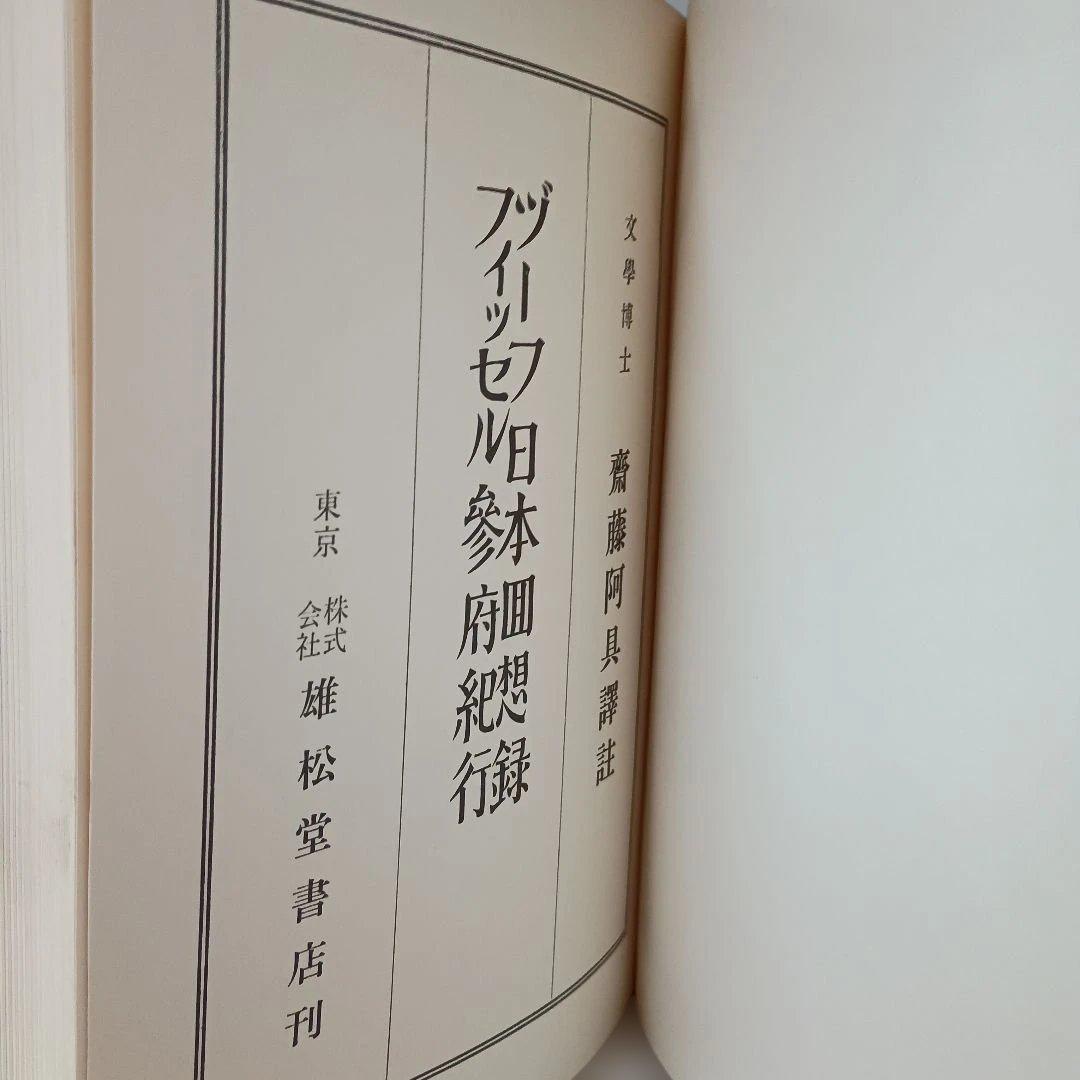 文學博士 齋藤阿具譯註
ヅーフ日本回想録
フイッセル參府紀行
東京 株式会社 雄松堂書店刊